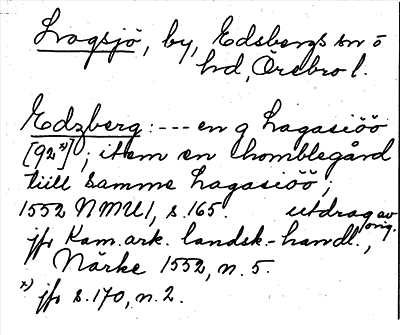 Logsjö, by, Edsbergs sn o
hd, Örebro l.
Edzberg: --- en g Lagasiöö
[92ˣ⁾]; item en homblegård
tiill samme Lagasiöö;
1552 NMU1, s. 165. utdrag av orig.
jfr Kam. ark. landsk.-handl.,
Närke 1552, n. 5.
x) jfr s. 170, n. 2.